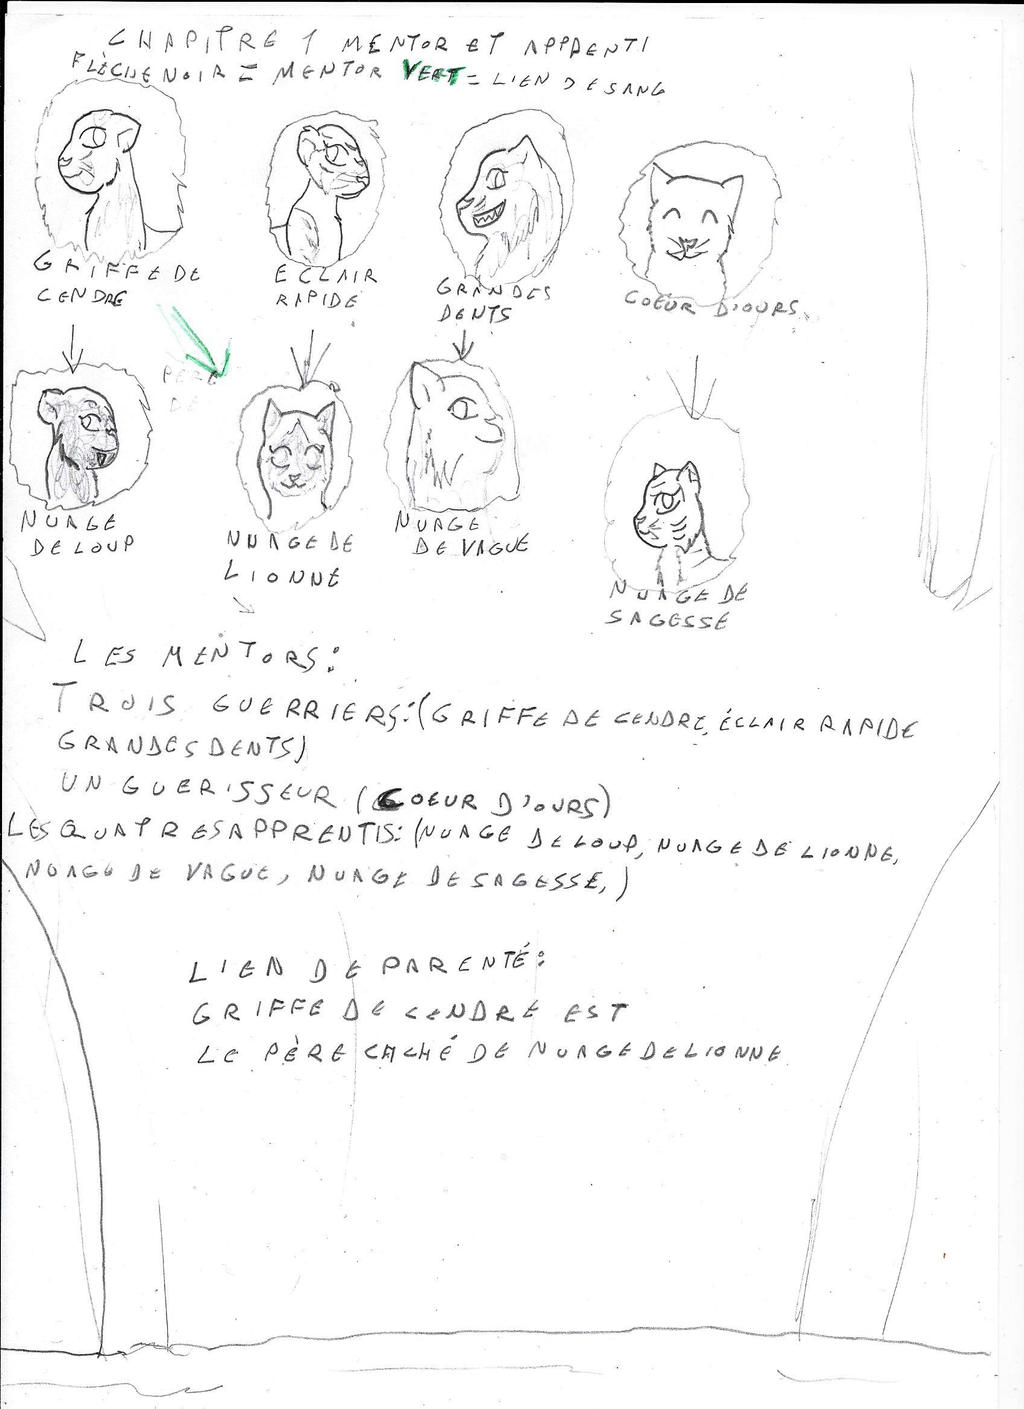 CHAPITRE 1 MENTOR ET APPRENTI
FLÈCHE NOIR = MENTOR VERT = LIEN DE SANG
GRIFFE DE CENDRE
ECLAIR RAPIDE
GRANDES DENTS
COEUR D'OURS
PÈRE DE
NUAGE DE LOUP
NUAGE DE LIONNE
NUAGE DE VAGUE
NUAGE DE SAGESSE
LES MENTORS:
TROIS GUERRIERS: (GRIFFE DE CENDRE, ÉCLAIR RAPIDE
GRANDES DENTS)
UN GUERISSEUR (COEUR D'OURS)
LES QUATRES APPRENTIS: (NUAGE DE LOUP, NUAGE DE LIONNE,
NUAGE DE VAGUE, NUAGE DE SAGESSE,)
LIEN DE PARENTÉ:
GRIFFE DE CENDRE EST
LE PÈRE CACHÉ DE NUAGE DE LIONNE